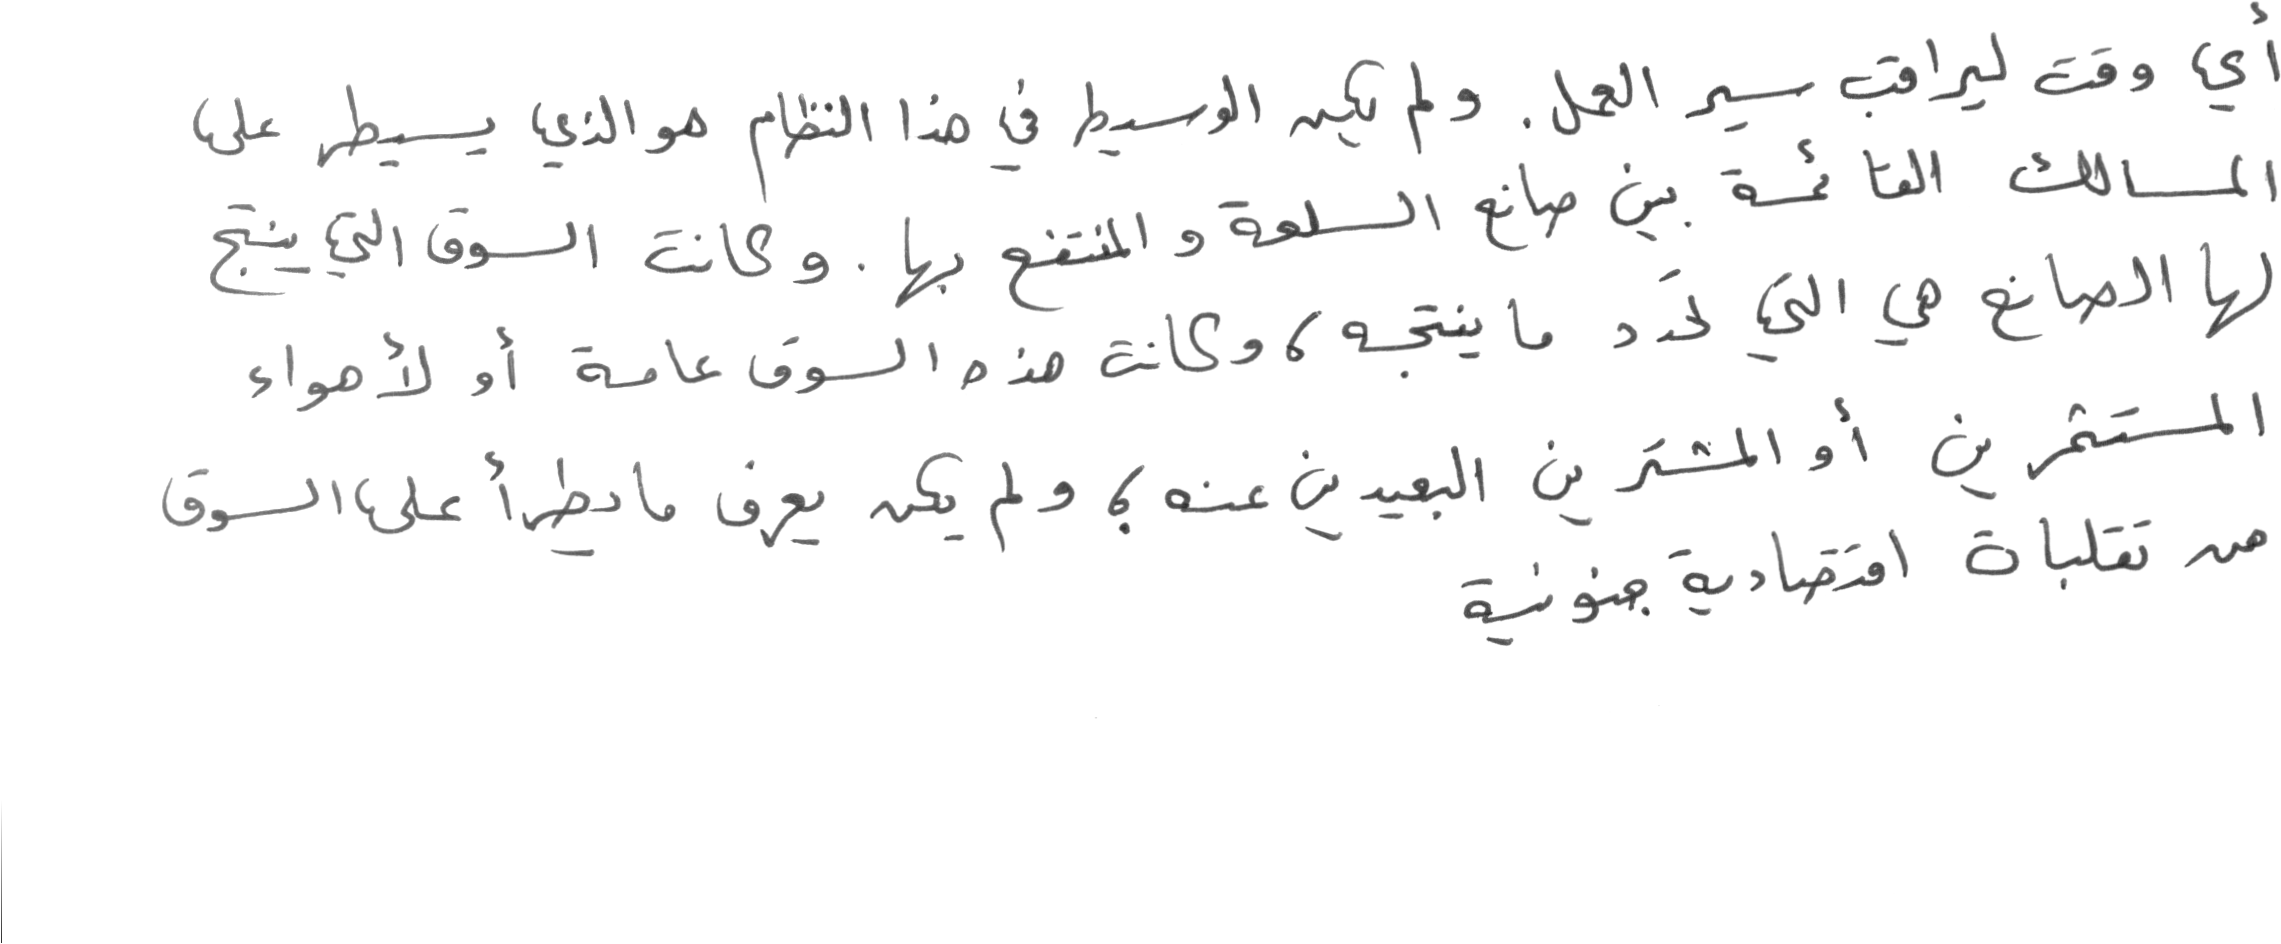 أي وقت ليراقب سير العمل. ولم يكن الوسيط في هذا النظام هو الذي يسيطر على
المسالك القائمة بين صانع السلعة والمنتفع بها. وكانت السوق التي ينتج
لها الصانع هي التي تحدد ما ينتجه، وكانت هذه السوق عامة أو لأهواء
المستثمرين أو المشترين البعيدين عنه؛ ولم يكن يعرف ما يطرأ على السوق
من تقلبات اقتصادية جنونية